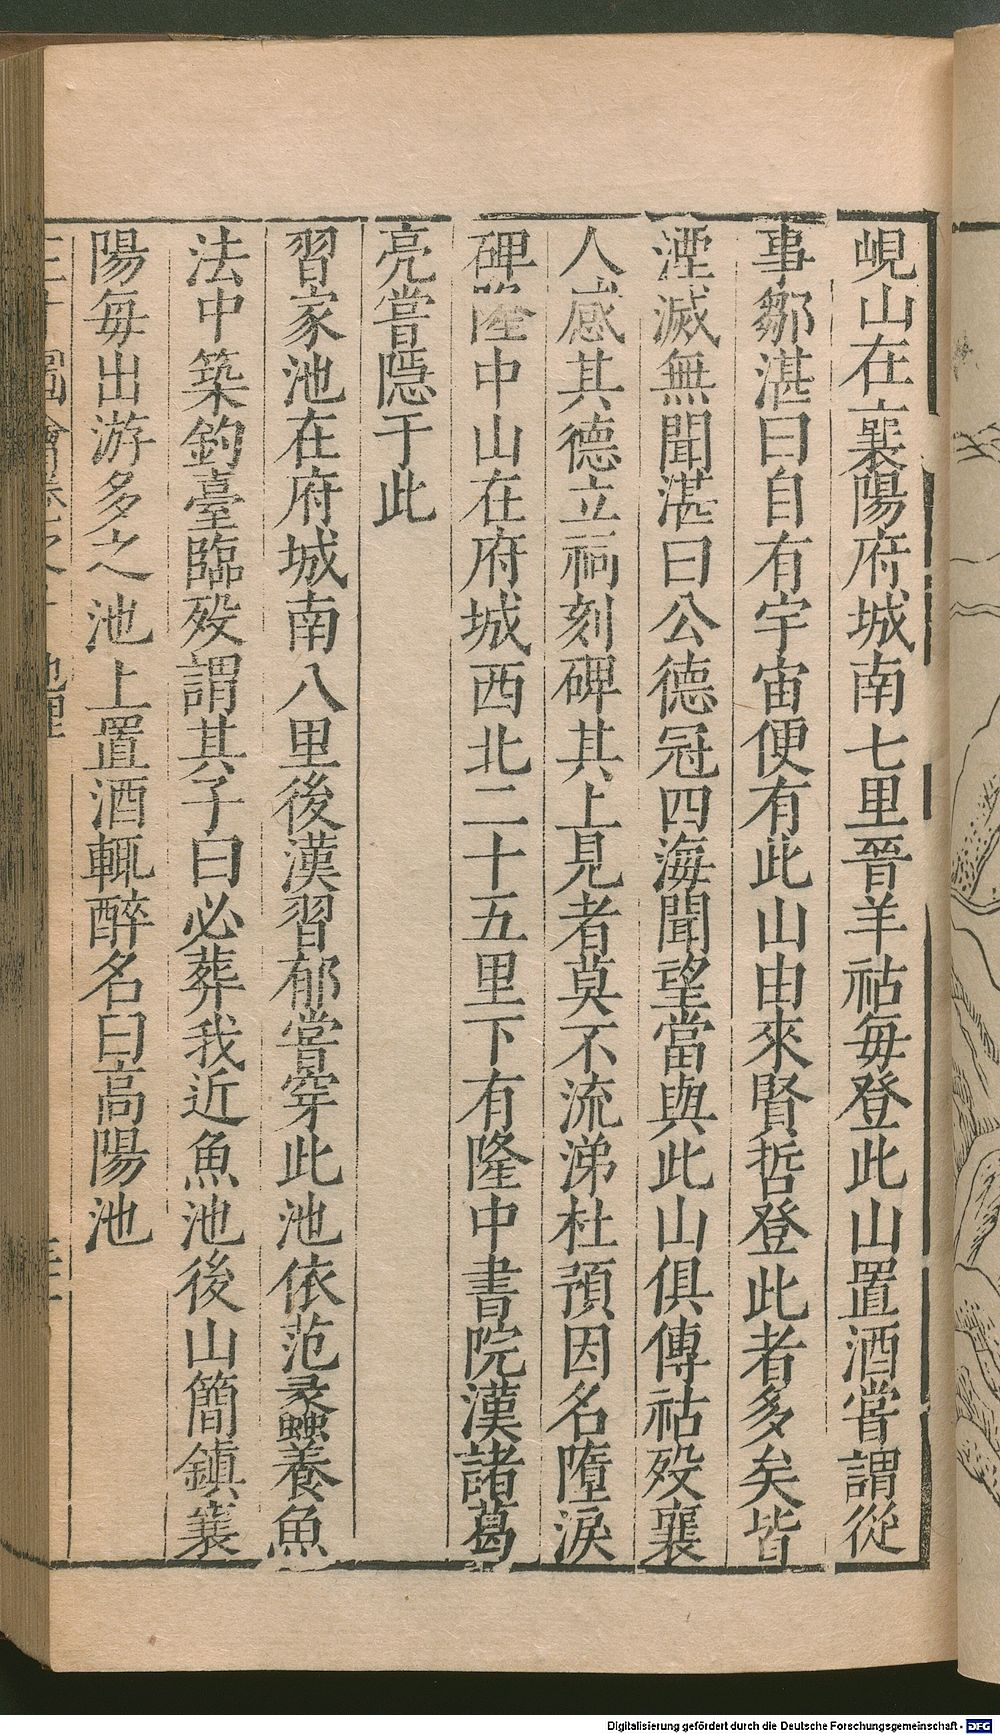 峴山在襄陽府城南七里晉羊祜每登此山置酒嘗謂從
事鄒湛曰自有宇宙便有此山由來賢哲登此者多矣皆
湮滅無聞湛曰公德冠四海聞望當與此山俱傳祜歿襄
人感其德立祠刻碑其上見者莫不流涕杜預因名墮淚
碑隆中山在府城西北二十五里下有隆中書院漢諸葛
亮嘗隱于此
習家池在府城南八里後漢習郁嘗穿此池依范蠡養魚
法中築釣臺臨歿謂其子曰必葬我近魚池後山簡鎮襄
陽每出游多之池上置酒輒醉名曰高陽池
三才圖會卷之十 地理
Digitalisierung gefördert durch die Deutsche Forschungsgemeinschaft - DFG